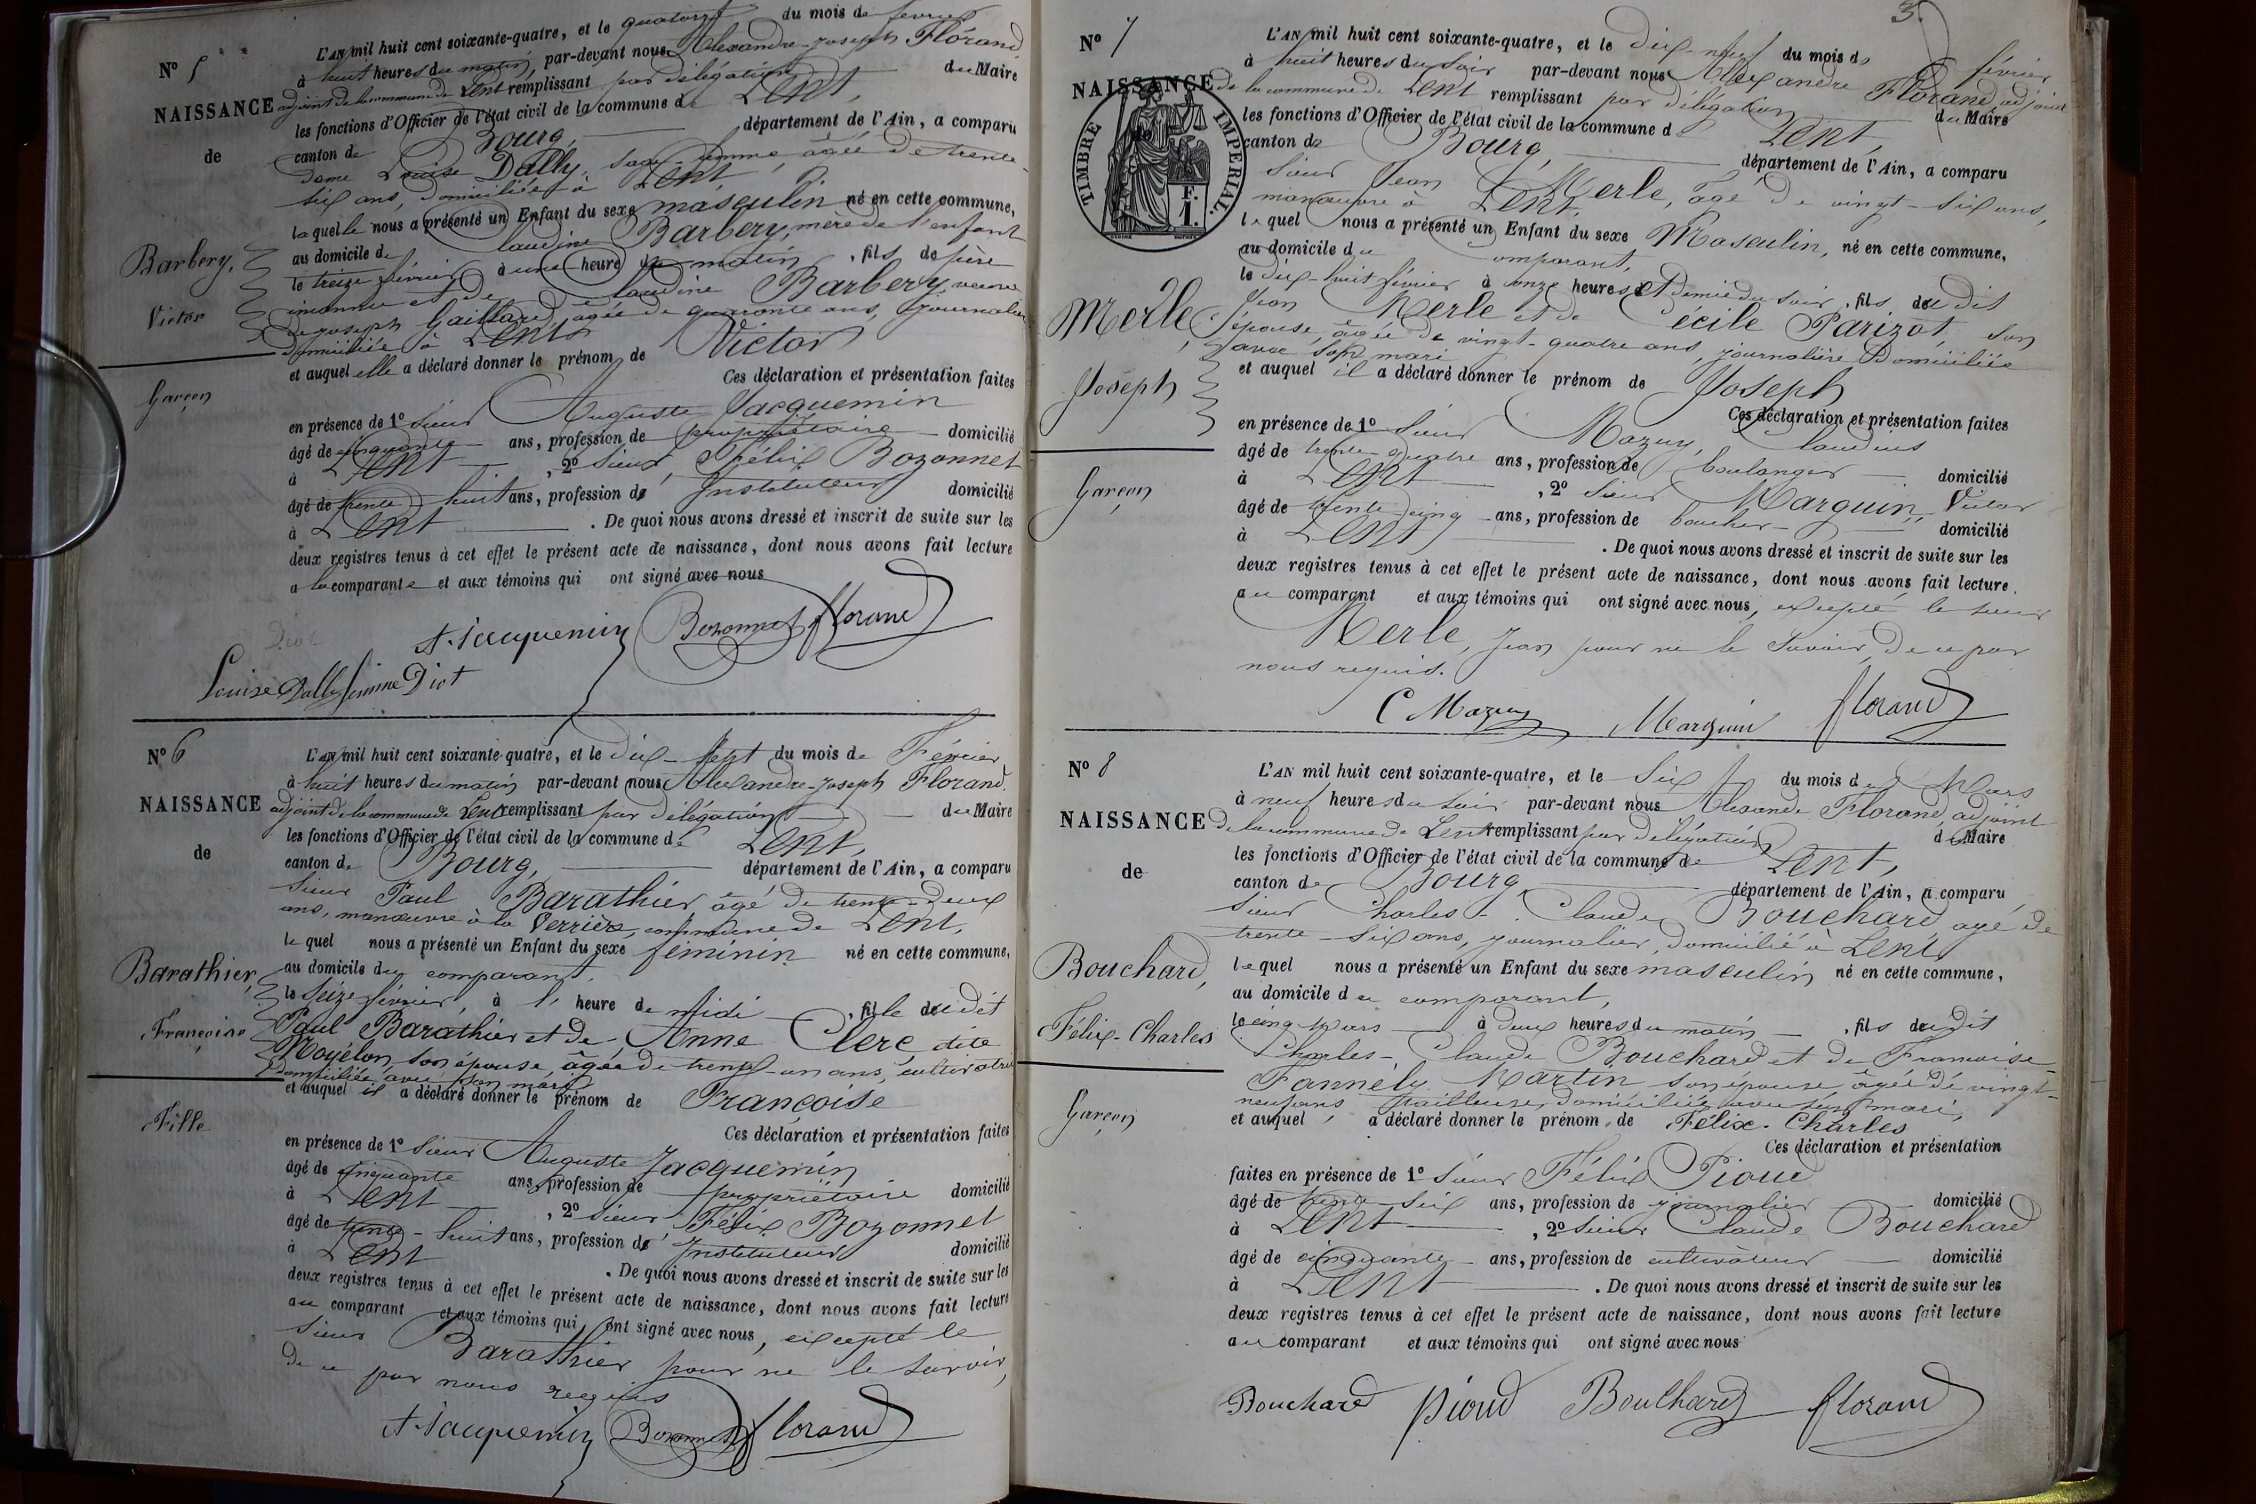 N° 5
NAISSANCE
de
Barbery,
Victor
Garçon
L'AN mil huit cent soixante-quatre, et le quatorze du mois de février
à huit heures du matin, par-devant nous Alexandre-Joseph Florand
adjoint de la commune de Lent remplissant par délégation du Maire
les fonctions d'Officier de l'état civil de la commune de Lent,
canton de Bourg, département de l'Ain, a comparu
dame Louise Dally, sage-femme, âgée de trente-
six ans, domiciliée à Lent,
laquelle nous a présenté un Enfant du sexe masculin né en cette commune,
au domicile de Claudine Barbery, mère de l'enfant
le treize février à une heure du matin, fils de père
inconnu et de Claudine Barbery, veuve
de Joseph Gaillard, âgée de quarante ans, journalière
domiciliée à Lent
et auquel elle a déclaré donner le prénom de Victor
Ces déclaration et présentation faites
en présence de 1° sieur Auguste Jacquemin
âgé de cinquante ans, profession de propriétaire domicilié
à Lent, 2° sieur Félix Bozonnet
âgé de trente-huit ans, profession de Instituteur domicilié
à Lent. De quoi nous avons dressé et inscrit de suite sur les
deux registres tenus à cet effet le présent acte de naissance, dont nous avons fait lecture
a la comparante et aux témoins qui ont signé avec nous
A. Jacquemin Bozonnet Florand
Louise Dally femme Diot
N° 6
NAISSANCE
de
Barathier,
Françoise
Fille
L'AN mil huit cent soixante-quatre, et le dix-sept du mois de Février
à huit heures du matin par-devant nous Alexandre-Joseph Florand.
adjoint de la commune de Lent remplissant par délégation du Maire
les fonctions d'Officier de l'état civil de la commune de Lent,
canton de Bourg, département de l'Ain, a comparu
sieur Paul Barathier âgé de trente-deux
ans, manœuvre à la Verrière, commune de Lent,
lequel nous a présenté un Enfant du sexe féminin né en cette commune,
au domicile du comparant,
le seize février, à l' heure de Midi, fille du dit
Paul Barathier et de Anne Clerc, dite
Moyélon, son épouse, âgée de trente-un ans, cultivatrice
domiciliée avec son mari
et auquel il a déclaré donner le prénom de Françoise
Ces déclaration et présentation faites
en présence de 1° sieur Auguste Jacquemin
âgé de cinquante ans, profession de propriétaire domicilié
à Lent, 2° sieur Félix Bozonnet
âgé de trente-huit ans, profession de Instituteur domicilié
à Lent. De quoi nous avons dressé et inscrit de suite sur les
deux registres tenus à cet effet le présent acte de naissance, dont nous avons fait lecture
au comparant et aux témoins qui ont signé avec nous, excepté le
sieur Barathier pour ne le savoir,
de ce par nous requis
A. Jacquemin Bozonnet Florand
3.
N° 7
NAISSANCE
TIMBRE IMPERIAL.
F.
1.
Merle,
Joseph
Garçon
L'AN mil huit cent soixante-quatre, et le dix-neuf du mois de février
à huit heures du soir par-devant nous Alexandre Florand, adjoint
de la commune de Lent remplissant par délégation du Maire
les fonctions d'Officier de l'état civil de la commune de Lent,
canton de Bourg, département de l'Ain, a comparu
sieur Jean Merle, âgé de vingt-six ans,
manœuvre à Lent,
lequel nous a présenté un Enfant du sexe Masculin, né en cette commune,
au domicile du comparant,
le dix-huit février à onze heures et demie du soir, fils du dit
Jean Merle et de Cécile Parizot, son
épouse, âgée de vingt-quatre ans, journalière domiciliée
avec son mari
et auquel il a déclaré donner le prénom de Joseph
Ces déclaration et présentation faites
en présence de 1° sieur Mazuy, Claudius
âgé de trente-quatre ans, profession de boulanger domicilié
à Lent, 2° sieur Marguin, Victor
âgé de trente-cinq ans, profession de boucher domicilié
à Lent. De quoi nous avons dressé et inscrit de suite sur les
deux registres tenus à cet effet le présent acte de naissance, dont nous avons fait lecture
au comparant et aux témoins qui ont signé avec nous, excepté le sieur
Merle, Jean pour ne le savoir, de ce par
nous requis.
C Mazuy Marguin Florand
N° 8
NAISSANCE
de
Bouchard,
Félix-Charles
Garçon
L'AN mil huit cent soixante-quatre, et le six du mois de Mars
à neuf heures du soir par-devant nous Alexandre Florand, adjoint
de la commune de Lent remplissant par délégation du Maire
les fonctions d'Officier de l'état civil de la commune de Lent,
canton de Bourg département de l'Ain, a comparu
sieur Charles-Claude Bouchard, âgé de
trente-six ans, journalier, domicilié à Lent
lequel nous a présenté un Enfant du sexe masculin né en cette commune,
au domicile du comparant,
le cinq Mars à deux heures du matin, fils du dit
Charles-Claude Bouchard et de Françoise-
Fannély Martin son épouse âgée de vingt-
neuf ans tailleuse, domiciliée avec son mari,
et auquel a déclaré donner le prénom de Félix-Charles
Ces déclaration et présentation
faites en présence de 1° sieur Félix Pioud
âgé de trente six ans, profession de journalier domicilié
à Lent, 2° sieur Claude Bouchard
âgé de cinquante ans, profession de cultivateur domicilié
à Lent. De quoi nous avons dressé et inscrit de suite sur les
deux registres tenus à cet effet le présent acte de naissance, dont nous avons fait lecture
au comparant et aux témoins qui ont signé avec nous
Bouchard Pioud Bouchard Florand